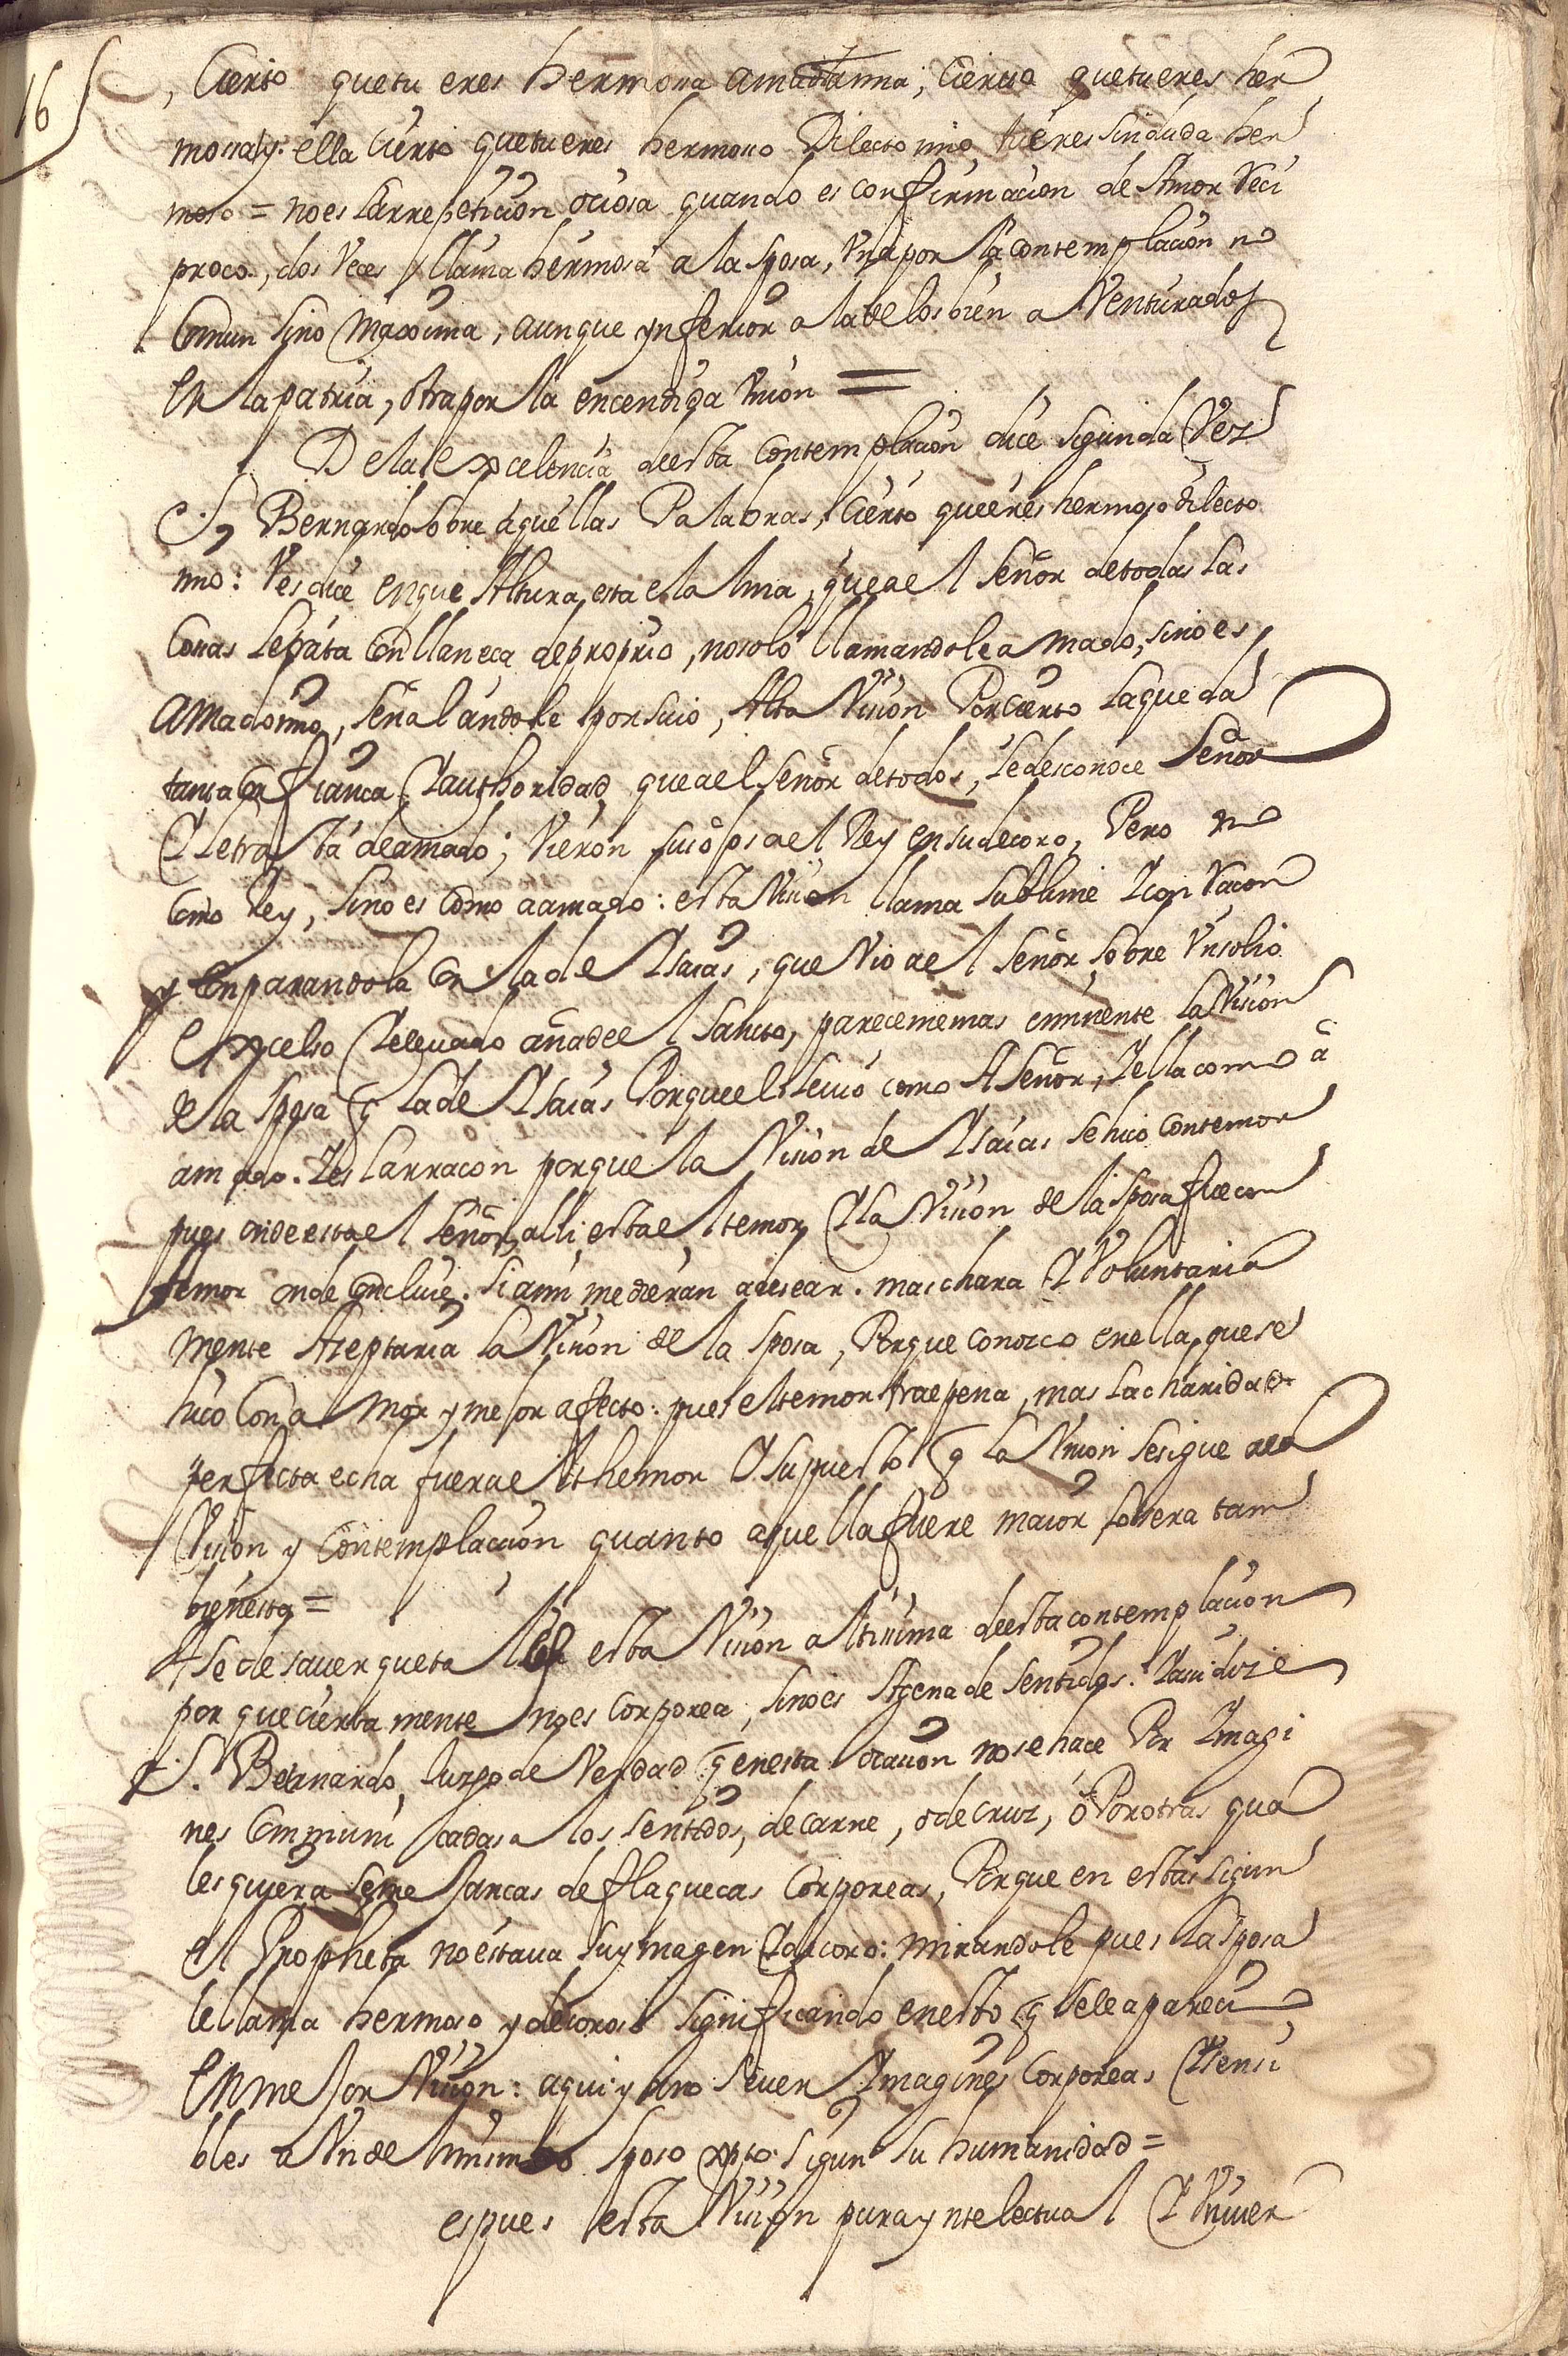 16
, Cierto que tu eres hermosa amada mia, Cierto que tu eres her
mosa, y ella Cierto que tu eres hermoso Dilecto mio, tu eres sin duda her
moso = no es la rrepeticion ociosa quando es confirmacion de Amor Reci
proco, dos Veces llama hermosa a la sposa, Vna por la contemplacion no
Comun sino Maxima, aunque ynferior a la de los bien a Venturados
En la patria, Otra por la encendida Vnion =
De la excelencia de esta Contemplacion dice segunda Vez
S. Bernardo sobre aquellas Palabras, Cierto que eres hermoso dilecto
mio: Ves dice en que Altura esta el alma, que a el Señor de todas las
Cosas le trata con llaneça de proprio, no solo llamandole amado, sino es,
amado mio, señalandole por suio, Alta Vision Por cierto la que da
tanta Confiança y authoridad que a el Señor de todos, le desconoce Señor
y le trata de amado; Vieron sus ojos a el Rey en su decoro, Pero no
Como Rey, sino es Como a amado: esta Vision llama sublime y con Raçon
y Conparandola Con la de Ysaias, que Vio a el Señor sobre Vn solio
Excelso y eleuado añade el sancto, pareceme mas eminente la Vision
de la sposa q la de Ysaias Porque el le vio como A Señor, y ella como â
amado. y es la rraçon porque la Vision de Ysaias se hiço con temor
pues onde esta el Señor, alli esta el temor, y la Vision de la sposa fue con
Amor onde Concluie. si a mi me dieran a desear. mas chara y Voluntaria
mente Azeptaria la Vision de la sposa, Porque conozco en ella, que se
hiço Con a mor y mejor afecto: pues el temor trae pena, mas la charidad
perfecta echa fuera el themor y supuesto q la Vnion se sigue a la
Vision y Contemplacion quanto aquella fuere maior lo sera tam
bien esta =
A se de sauer que tal es esta Vision altissima de esta contemplacion
porque ciertamente no es Corporea, sino es Agena de sentidos. y asi dize
S. Bernardo, Juzgo de Verdad q en esta ocasion no se hace Por Ymagi
nes Communicadas a los sentidos, de carne, o de Cruz, ó Por otras qua
lesquiera semejanças de flaqueças Corporeas, Porque en estas sigun
el Propheta no estaua su ymagen y decoro: mirandole pues la sposa
le llama hermoso y decoroso significando en esto q se le aparecio
En mejor Vision: aqui ya no se uen Ymagines Corporeas y sensi
bles a Vn de el mismo sposo xpto sigun su humanidad =
es pues esta Vision pura yntelectual y Vniuer